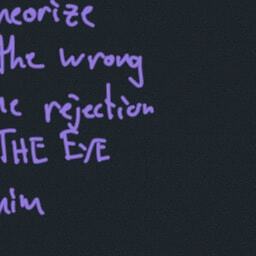 neorize
the wrong
rejection
THE EYE
him